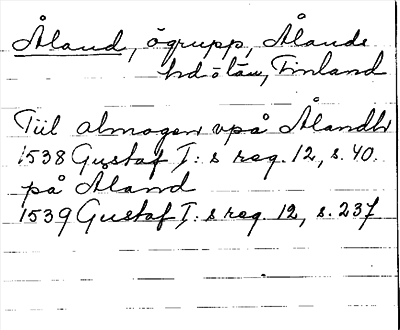 Åland, ögrupp, Ålands
hd o län, Finland
Till almogen vpå Ålandh
1538 Gustaf I: s reg. 12, s. 40.
på Åland
1539 Gustaf I: s reg. 12, s. 237